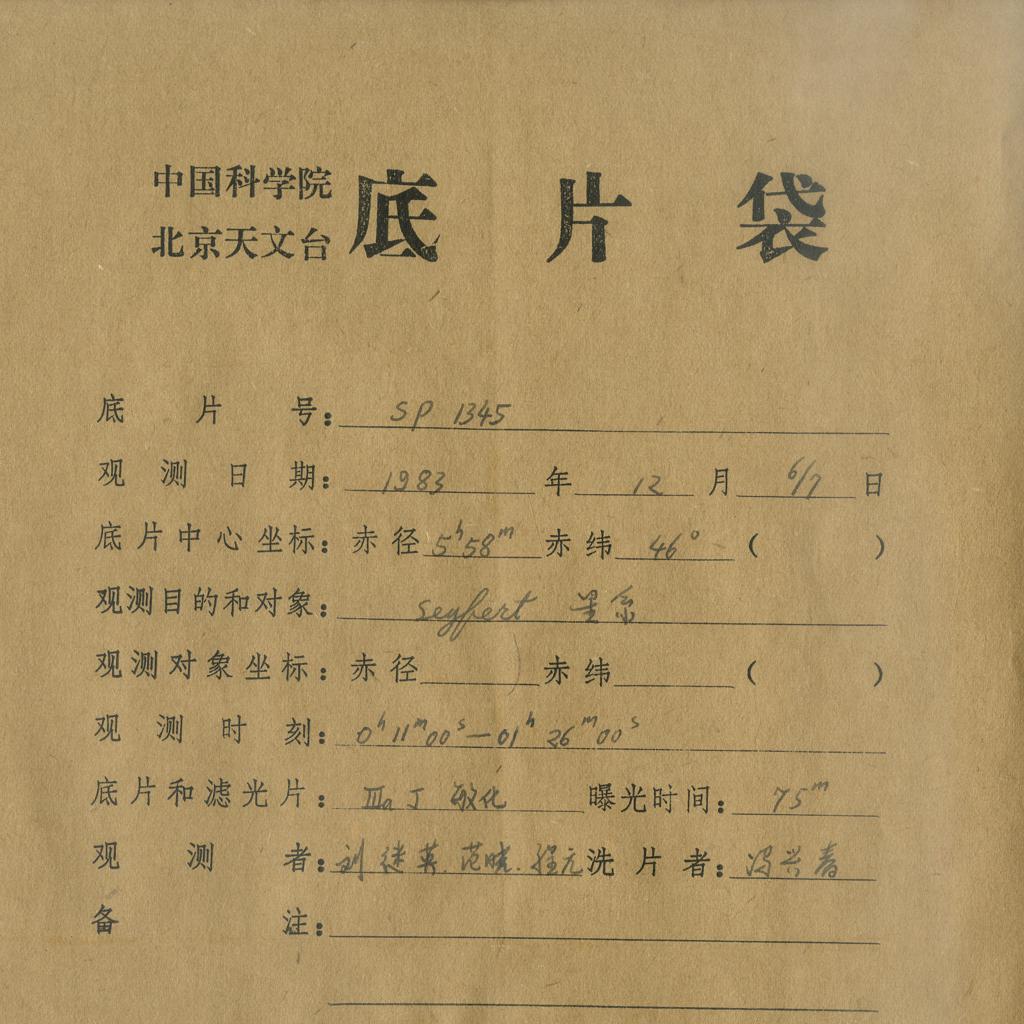 中国科学院
北京天文台
底片袋
底片号：SP 1345
观测日期：1983 年 12 月 6/7 日
底片中心坐标：赤径 5ʰ58ᵐ 赤纬 46° （ ）
观测目的和对象：Seyfert 星系
观测对象坐标：赤径 赤纬 （ ）
观测时刻：0ʰ11ᵐ00ˢ—01ʰ26ᵐ00ˢ
底片和滤光片：IIIa J 敏化 曝光时间：75ᵐ
观测者：刘继英.范晓.程元 洗片者：冯兴春
备注：